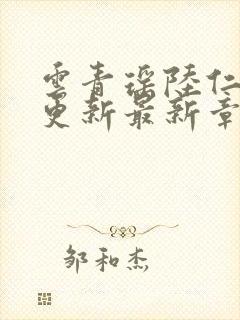 雲青瑶陸仁
更新最新章
邹和杰